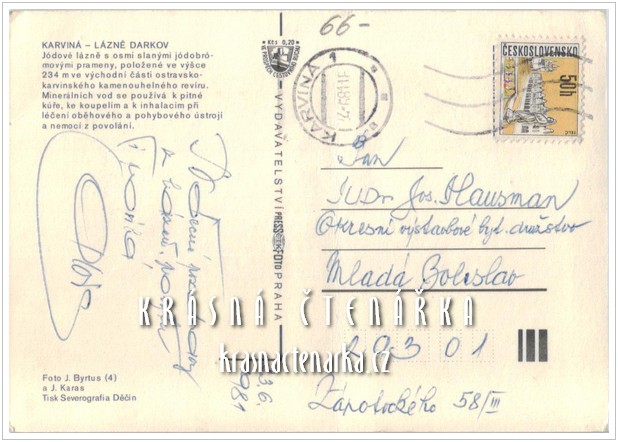 66-
KARVINÁ – LÁZNĚ DARKOV
Jódové lázně s osmi slanými jódobró-
movými prameny, položené ve výšce
234 m ve východní části ostravsko-
karvinského kamenouhelného revíru.
Minerálních vod se používá k pitné
kúře, ke koupelím a k inhalacím při
léčení oběhového a pohybového ústrojí
a nemocí z povolání.
Kčs 0,20
VYDAVATELSTVÍ PRESSFOTO PRAHA
KARVINÁ 1
ČESKOSLOVENSKO
50h
Pan
JUDr Jos. Hausman
Okresní výstavbové byt. družstvo
Mladá Boleslav
293 01
Zápotockého 58/III
KRÁSNÁ ČTENÁŘKA
krasnactenarka.cz
Foto J. Byrtus (4)
a J. Karas
Tisk Severografia Děčín